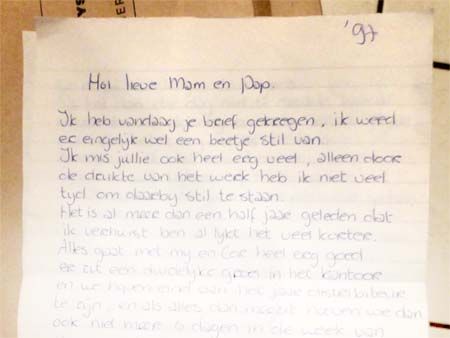 '97
Hoi lieve Mam en Pap.
Ik heb vandaag je brief gekregen, ik werd
er eingelijk wel een beetje stil van.
Ik mis jullie ook heel erg veel, alleen door
de drukte van het werk heb ik niet veel
tyd om daarby stil te staan.
Het is al meer dan een half jaar geleden dat
ik verhuist ben al lykt het veel korter.
Alles gaat met my en heel erg goed
er zit een duidelijke groei in het kantoor
en we hopen eind van het jaar
te zyn, en als alles dan hoeven we dan
ook niet meer 6 dagen in de week van